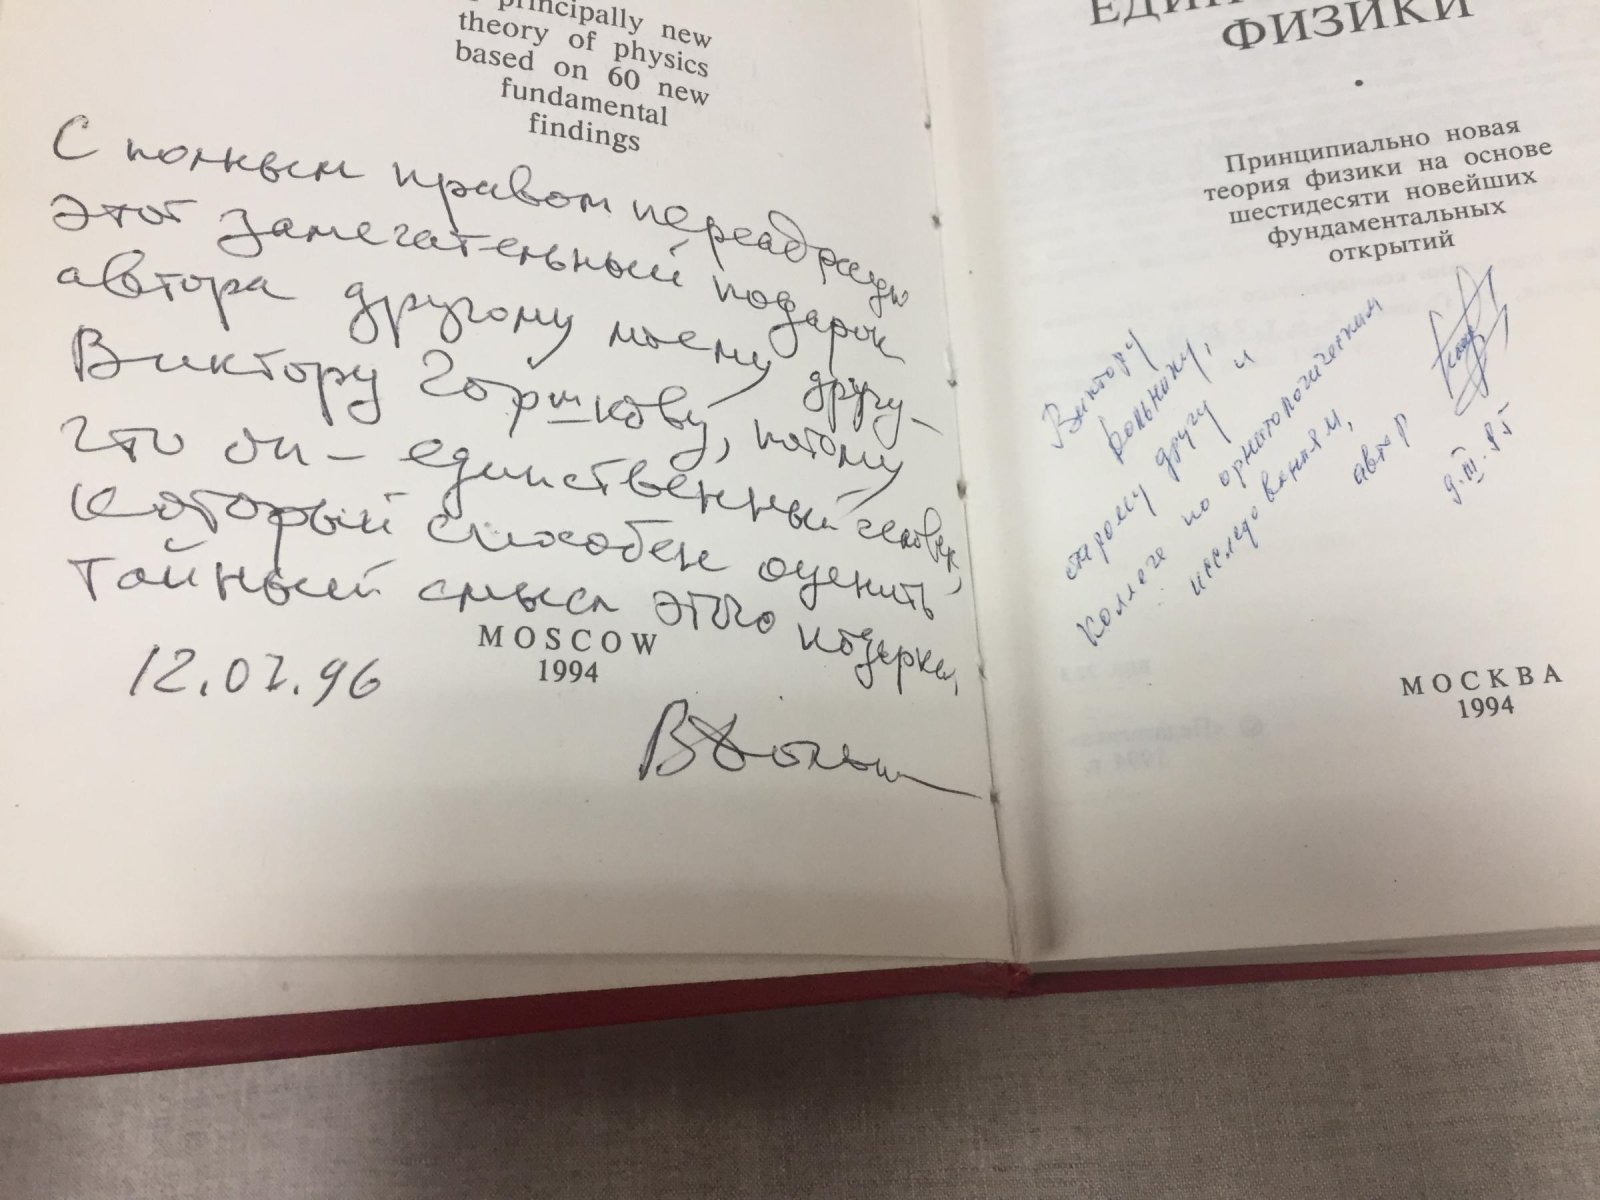 principally new
theory of physics
based on 60 new
fundamental
findings
С полным правом переадресую
этот замечательный подарок
автора другому моему другу –
Виктору Горшкову, потому
что он – единственный человек,
который способен оценить
тайный смысл этого подарка.
12.07.96
MOSCOW
1994
ФИЗИКИ
Принципиально новая
теория физики на основе
шестидесяти новейших
фундаментальных
открытий
Виктору
Дольнику,
старому другу и
коллеге по орнитологическим
исследованиям,
автор
9.III.95
МОСКВА
1994